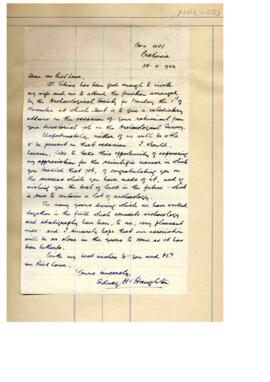 Box 401
Pretoria
Dear van Riet Lowe,
Dr Tobias has been good enough to invite
my wife and me to attend the function arranged
by the Archaeological Society for Monday the 1st of
November at which Smuts is to give a valedictory
address on the occasion of your retirement from
your directorial job on the Archaeological Survey.
Unfortunately, neither of us will be able
to be present on that occasion. I should,
however, like to take this opportunity of expressing
my appreciation for the scientific manner in which
you tackled that job, of congratulating you on
the success which you have made of it, and of
wishing you the best of luck in the future - which
is sure to contain a lot of archaeology.
The many years during which we have worked
together in the field which connects archaeology
and stratigraphy have been, to me, very pleasant
ones: and I sincerely hope that our association
will be as close in the years to come as it has
been hitherto.
With my best wishes to you and
van Riet Lowe.
Yours sincerely,
Sidney H. Haughton